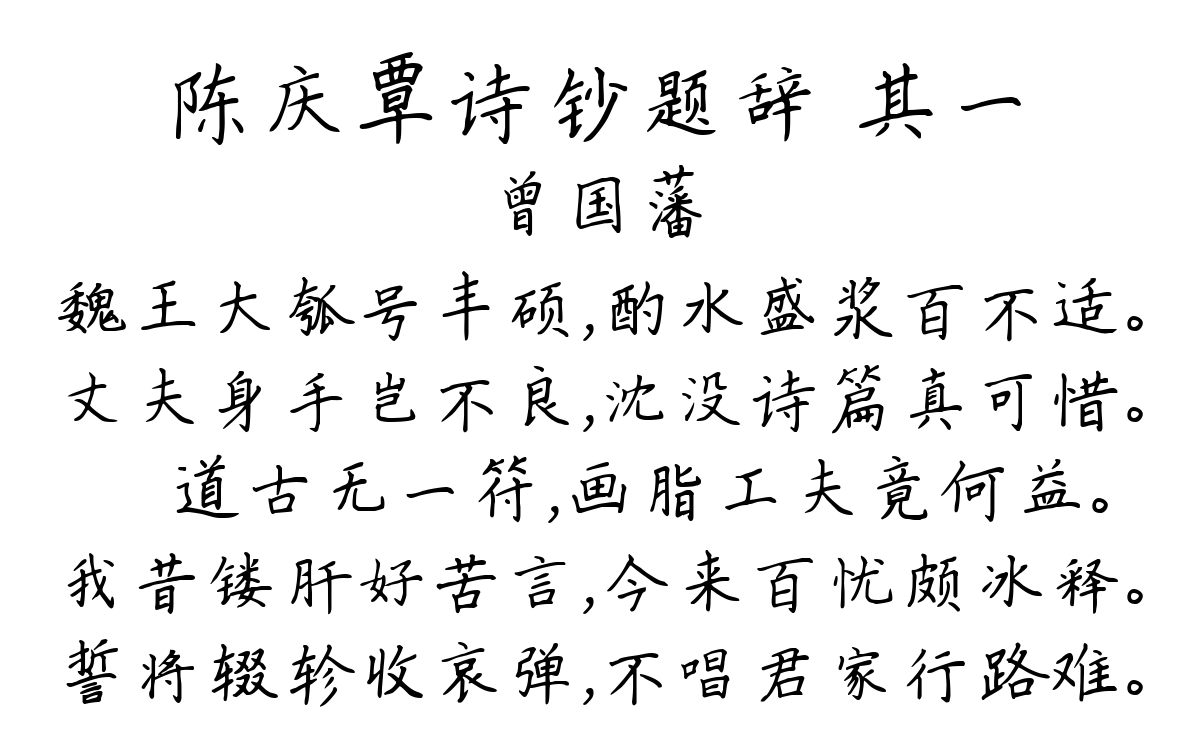 陈庆覃诗钞题辞 其一
曾国藩
魏王大瓠号丰硕,酌水盛浆百不适。
丈夫身手岂不良,沈没诗篇真可惜。
道古无一符,画脂工夫竟何益。
我昔镂肝好苦言,今来百忧颇冰释。
誓将辍轸收哀弹,不唱君家行路难。